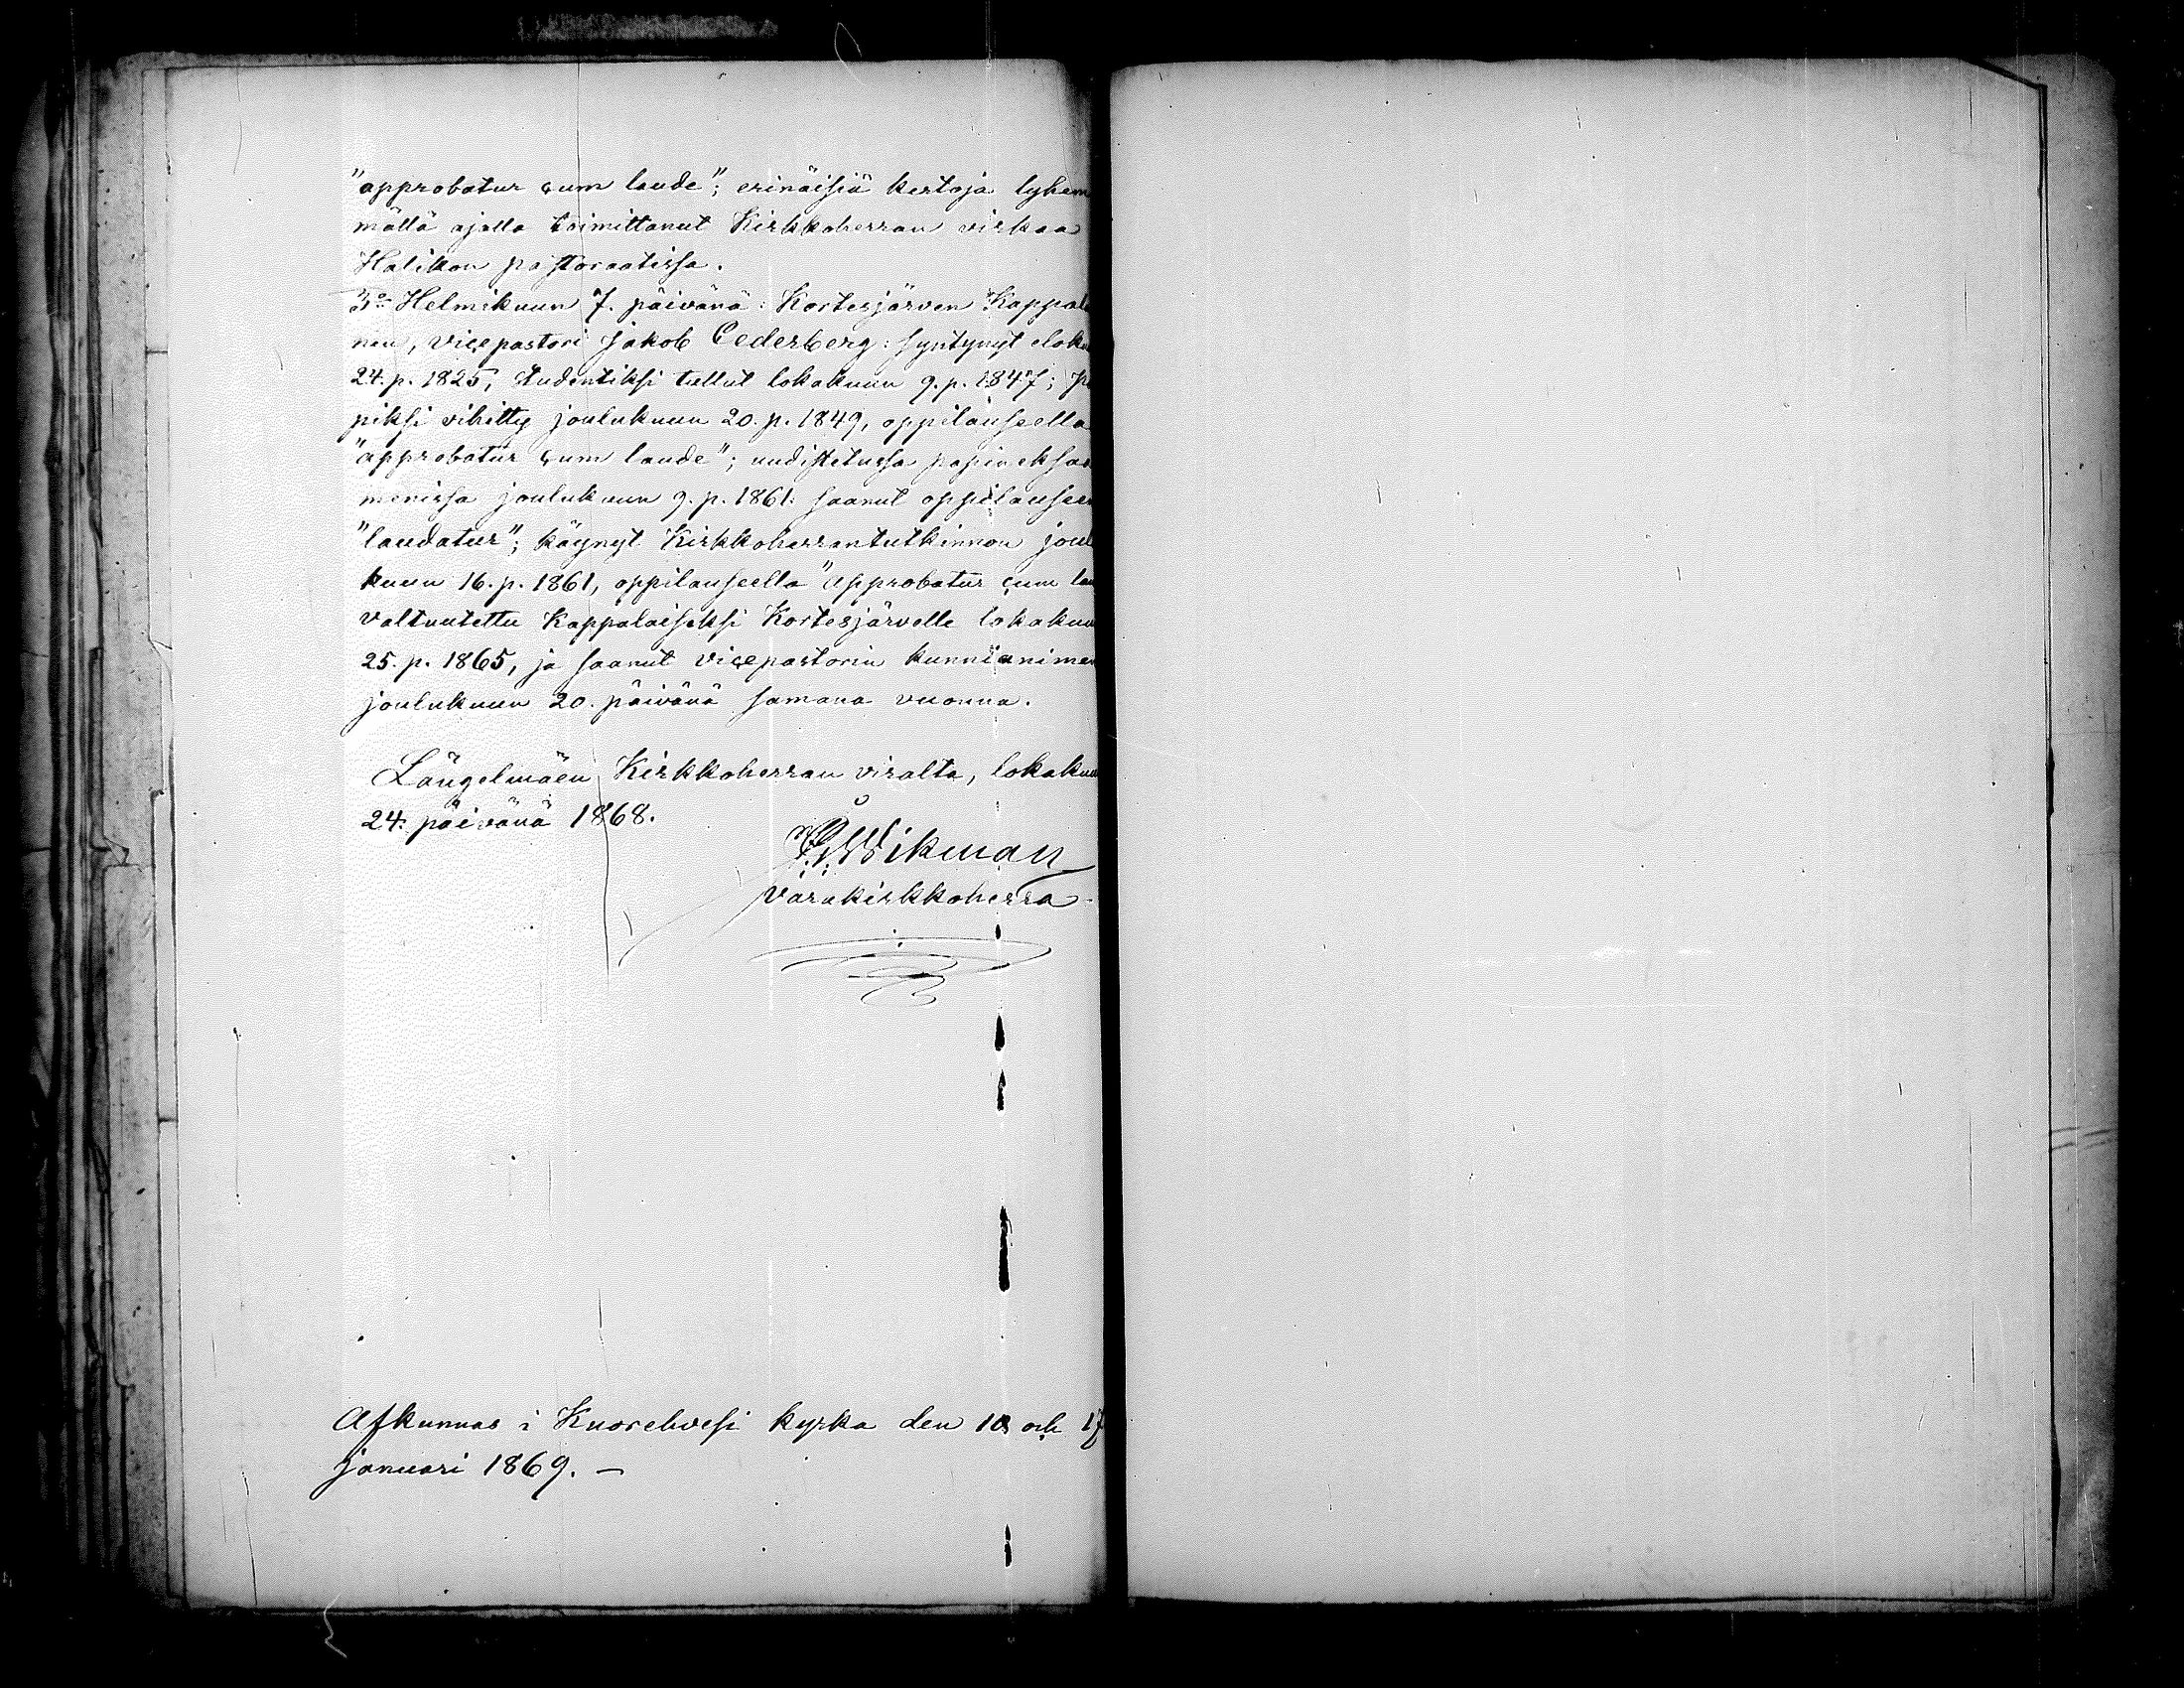 "approbatur cum laude"; erinäisiä kertoja lyhem
mällä ajalla toimittanut Kirkkoherran virkaa
Halikon pastoraatissa.
3:o Helmikuun 7. päivänä: Kortesjärven Kappala
nen, vicepastori Jakob Cederberg: syntynyt eloku
24. p. 1825, studentiksi tullut lokakuun 9. p. 1847; pa
piksi vihitty joulukuun 20. p. 1849, oppilauseella
"approbatur cum laude"; uudistetussa papineksa
menissa joulukuun 9. p. 1861. saanut oppilauseen
"laudatur"; käynyt Kirkkoherrantutkinnon joul
kuun 16. p. 1861, oppilauseella "approbatur cum lau
valtuutettu Kappalaiseksi Kortesjärvelle lokakuu
25. p. 1865, ja saanut vicepastorin kunnianimen
joulukuun 20. päivänä samana vuonna.
Längelmäen Kirkkoherran viralta, lokakuu
24. päivänä 1868.
Wikman
Varakirkkoherra.
Afkunnas i Kuorehvesi kyrka den 10 och 17
januari 1869. –